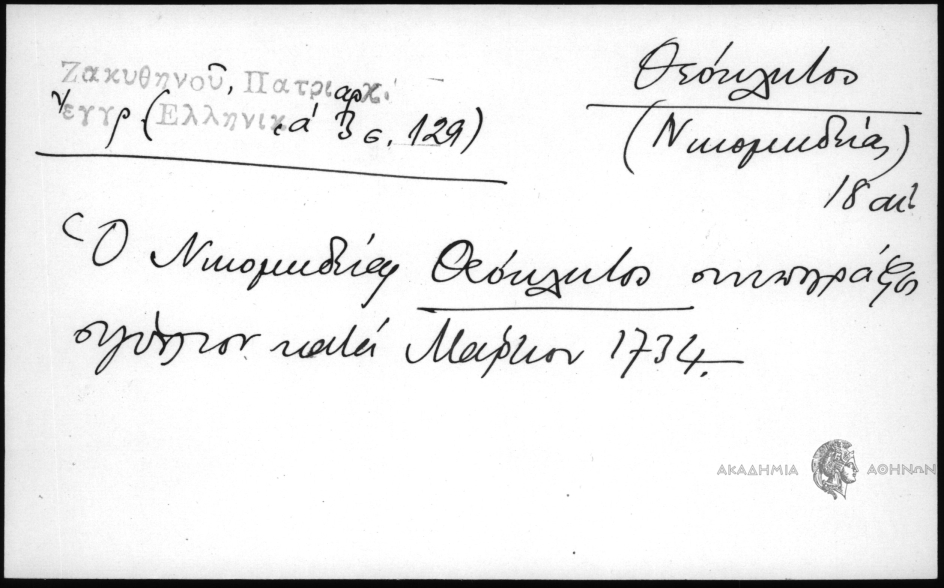 Ζακυθηνοῦ, Πατριαρχ.
ἔγγρ (Ἑλληνικά 3 σ. 129)
Θεόκλητος
(Νικομηδείας)
18 αἰ
Ὁ Νικομηδείας Θεόκλητος συνυπογράφει
σιγίλλιον κατά Μάρτιον 1734.
ΑΚΑΔΗΜΙΑ ΑΘΗΝΩΝ